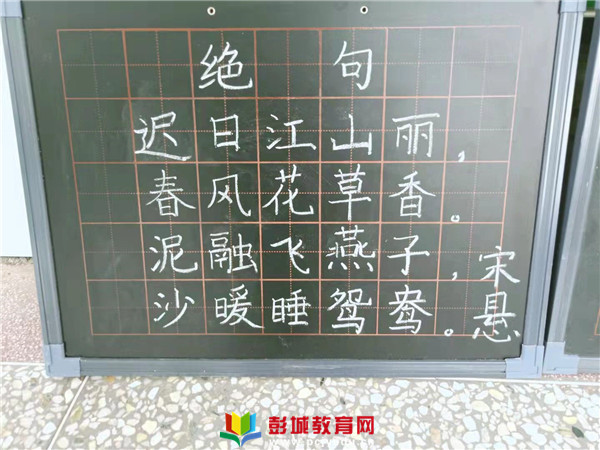 绝句
迟日江山丽，
春风花草香。
泥融飞燕子，
沙暖睡鸳鸯。
宋悬
彭城教育网